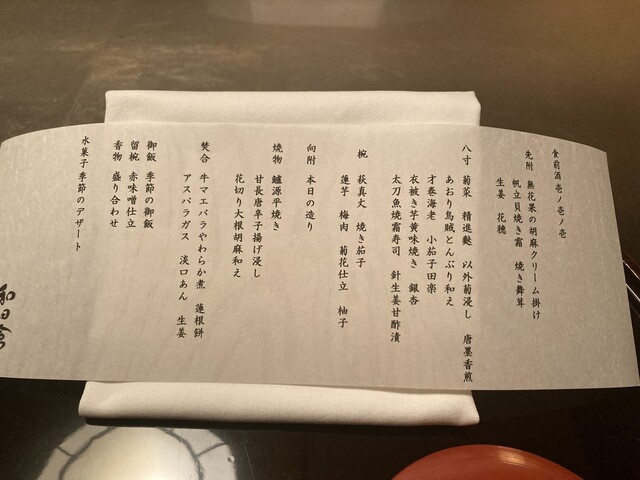 食前酒 壱ノ一ノ壱
先附 無花果の胡麻クリーム掛け
帆立貝焼き霜 焼き舞茸
生姜 花穂
八寸 菊菜 精進麩 以外菊浸し 唐墨香煎
あおり烏賊とんぶり和え
才巻海老 小茄子田楽
衣被き芋黄味焼き 銀杏
太刀魚焼霜寿司 針生姜甘酢漬
椀 萩真丈 焼き茄子
蓮芋 梅肉 菊花仕立 柚子
向附 本日の造り
焼物 鱸源平焼き
甘長唐辛子揚げ浸し
花切り大根胡麻和え
焚合 牛マエバラやわらか煮 蓮根餅
アスパラガス 淡口あん 生姜
御飯 季節の御飯
留椀 赤味噌仕立
香物 盛り合わせ
水菓子 季節のデザート
和田倉